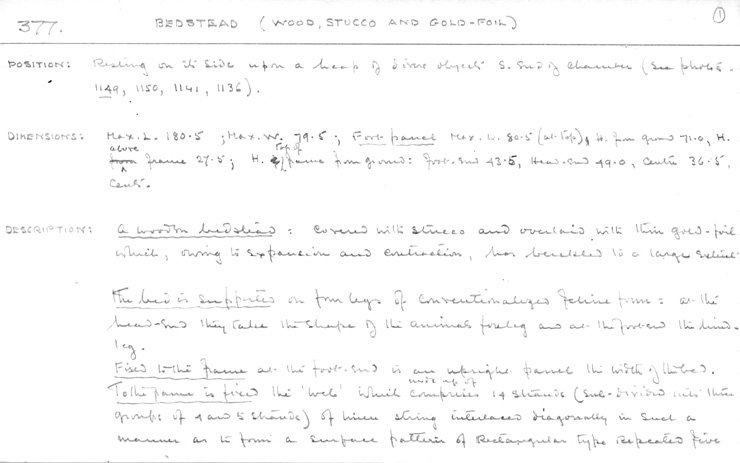 377. BEDSTEAD (WOOD, STUCCO AND GOLD-FOIL) 1
POSITION: Resting on its side upon a heap of divers objects S. End of Chamber (See photos.
1149, 1150, 1141, 1136).
DIMENSIONS: Max. L. 180.5 ; Max. W. 79.5 ; Foot-panel Max. W. 80.5 (at top), H. from ground 71.0, H.
above
from frame 27.5 ; H. top of frame from ground: foot-end 43.5, Head-end 49.0, Centre 36.5,
Cents.
DESCRIPTION: A wooden bedstead : covered with stucco and overlaid with thin gold-foil
which, owing to expansion and contraction, has buckled to a large extent.
The bed is supported on four legs of conventionalized feline form : at the
head-end they take the shape of the animals foreleg and at the foot-end the hind-
leg.
Fixed to the frame at the foot-end is an upright panel the width of the bed.
made up of
To the frame is fixed the 'web' which comprises 14 strands (sub-divided into three
groups of 4 and 5 strands) of linen string interlaced diagonally in such a
manner as to form a surface pattern of rectangular type repeated five